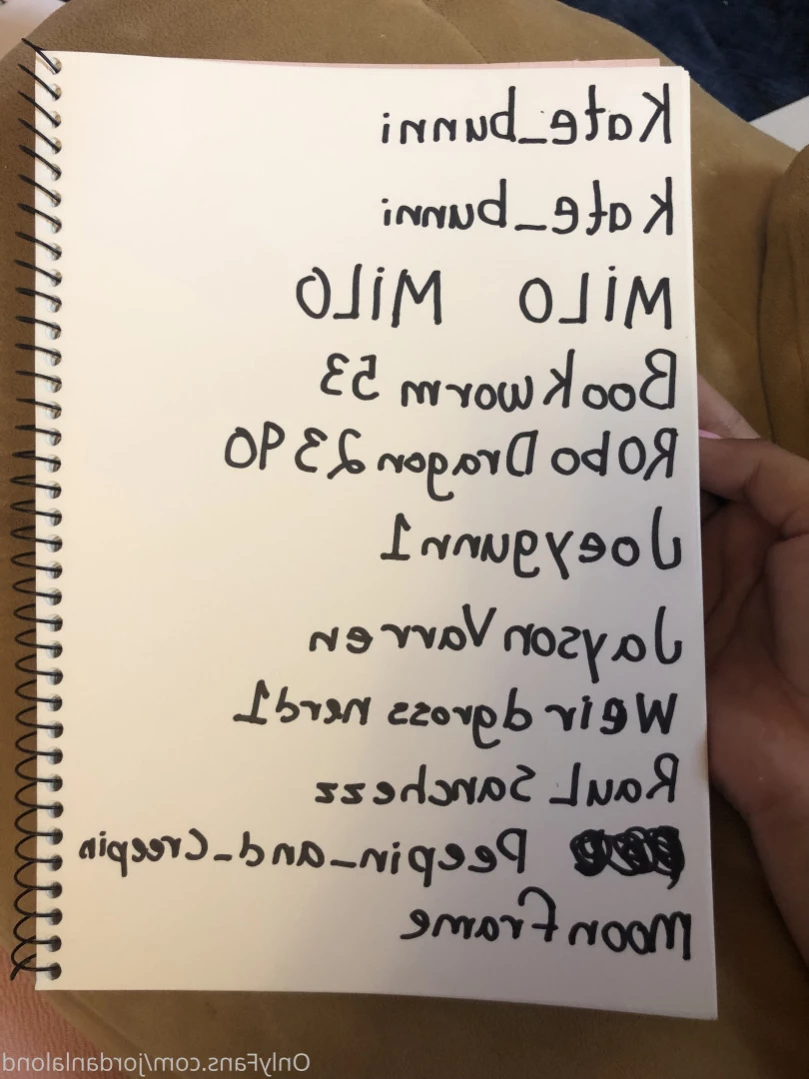 Kate_bunni
Kate_bunni
MiLO MiLO
Bookworm 53
RoboDragon2390
Joeygunn1
Jayson Varren
Weirdgross nerd1
Raul Sanchezz
Peepin_and_Creepin
moonframe
OnlyFans.com/jordanlalond